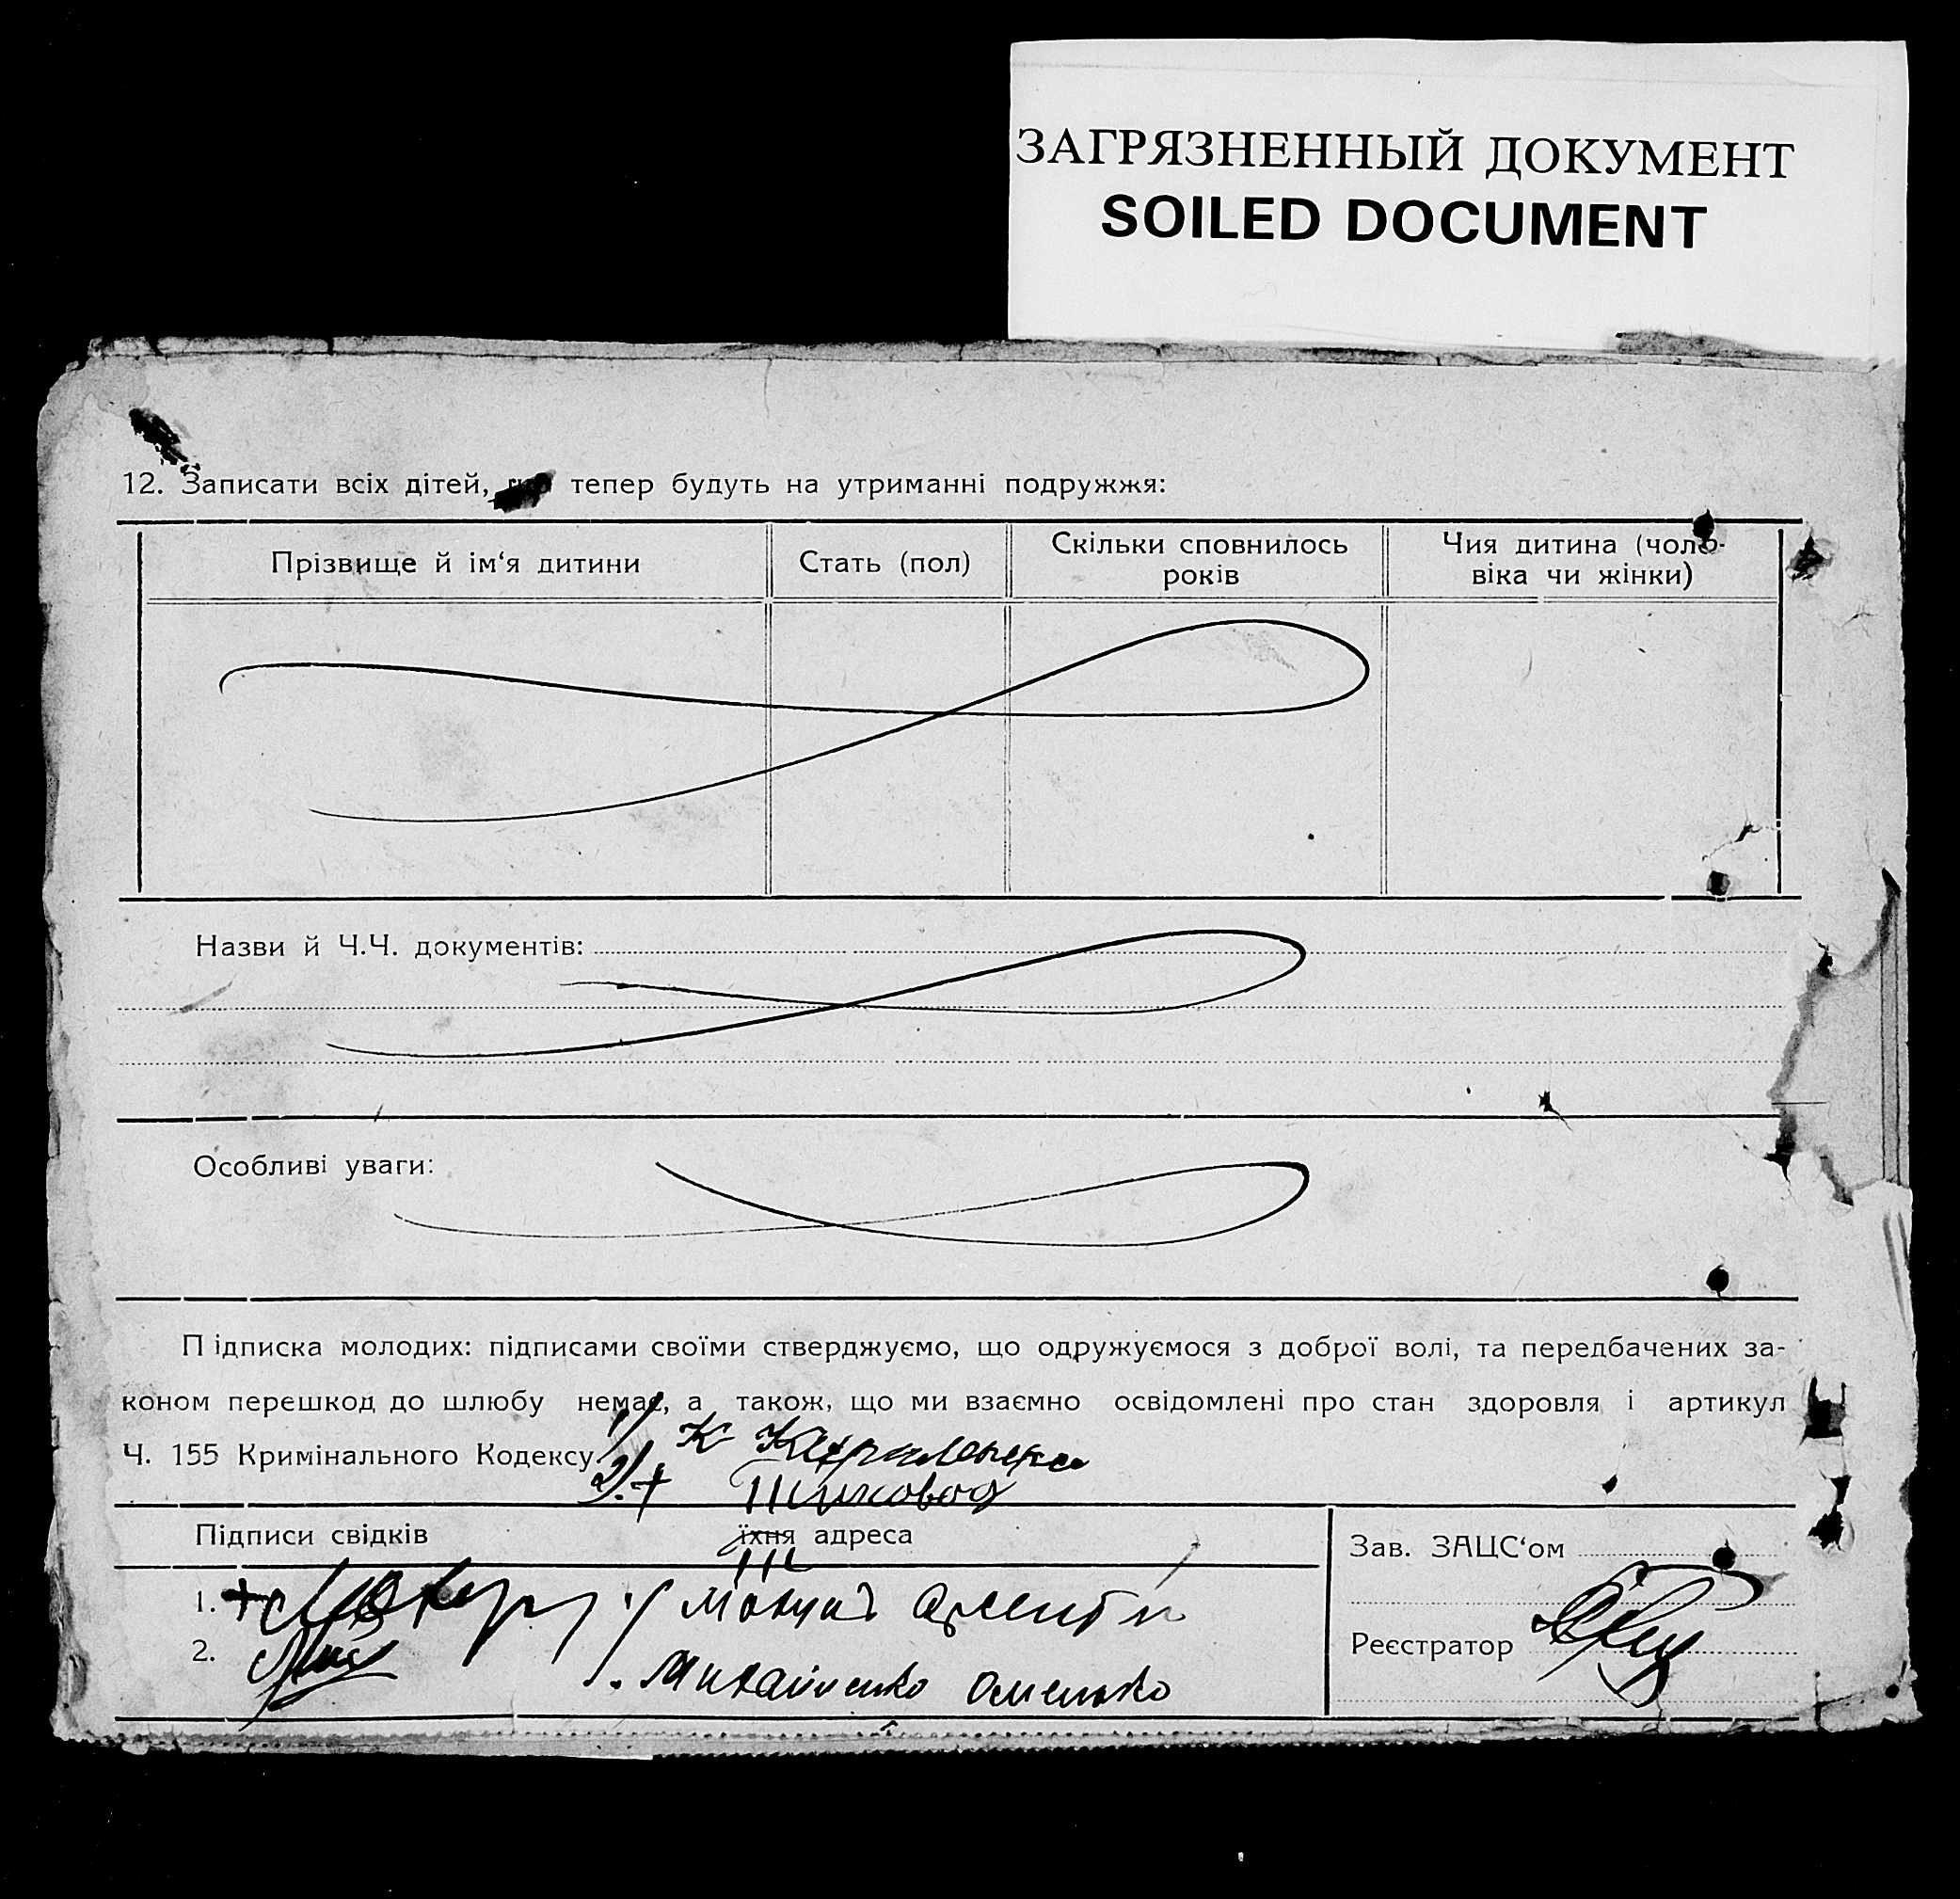 ЗАГРЯЗНЕННЫЙ ДОКУМЕНТ
SOILED DOCUMENT
12. Записати всіх дітей, що тепер будуть на утриманні подружжя:
Прізвище й ім‘я дитини
Стать (пол)
Скільки сповнилось
років
Чия дитина (чоло-
віка чи жінки)
Назви й Ч.Ч. документів:
Особливі уваги:
Підписка молодих: підписами своїми стверджуємо, що одружуємося з доброї волі, та передбачених за-
коном перешкод до шлюбу немає, а також, що ми взаємно освідомлені про стан здоровля і артикул
Ч. 155 Кримінального Кодексу
1/ К
2/. +
Підписи свідків
їхня адреса
Зав. ЗАЦС‘ом
1. +
1/
2.
Михайленко Омелько
Реєстратор